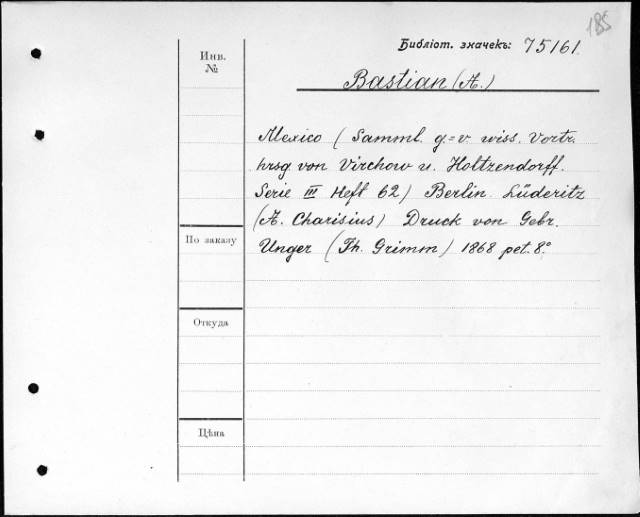 185
Библіот. значекъ: 75161.
Инв.
№
Bastian (A.)
Mexico (Samml. g.=v. wiss. Vortr.
hrsg. von Virchow u. Holtzendorff.
Serie III Heft 62) Berlin. Lüderitz
(A. Charisius) Druck von Gebr.
По заказу
Unger (Th. Grimm) 1868 pet. 8°
Откуда
Цѣна